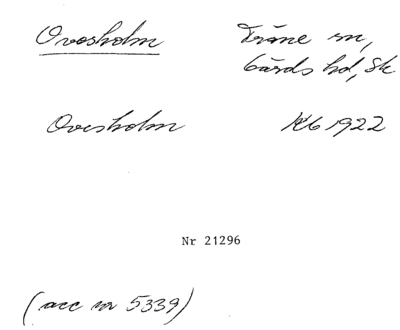 Ovesholm Träne sn,
Gärds hd, Sk
Ovesholm Kb 1922
Nr 21296
(acc nr 5339)